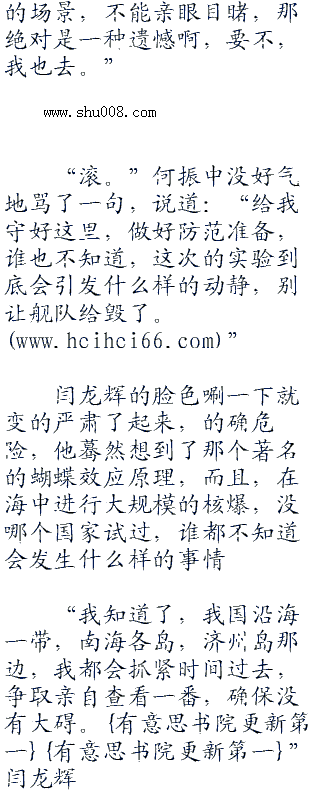 的场景，不能亲眼目睹，那
绝对是一种遗憾啊，要不，
我也去。”
www.shu008.com
“滚。”何振中没好气
地骂了一句，说道：“给我
守好这里，做好防范准备，
谁也不知道，这次的实验到
底会引发什么样的动静，别
让舰队给毁了。
(www.hcihci66.com)”
闫龙辉的脸色唰一下就
变的严肃了起来，的确危
险，他蓦然想到了那个著名
的蝴蝶效应原理，而且，在
海中进行大规模的核爆，没
哪个国家试过，谁都不知道
会发生什么样的事情
“我知道了，我国沿海
一带，南海各岛，济州岛那
边，我都会抓紧时间过去，
争取亲自查看一番，确保没
有大碍。{有意思书院更新第
一}{有意思书院更新第一}”
闫龙辉